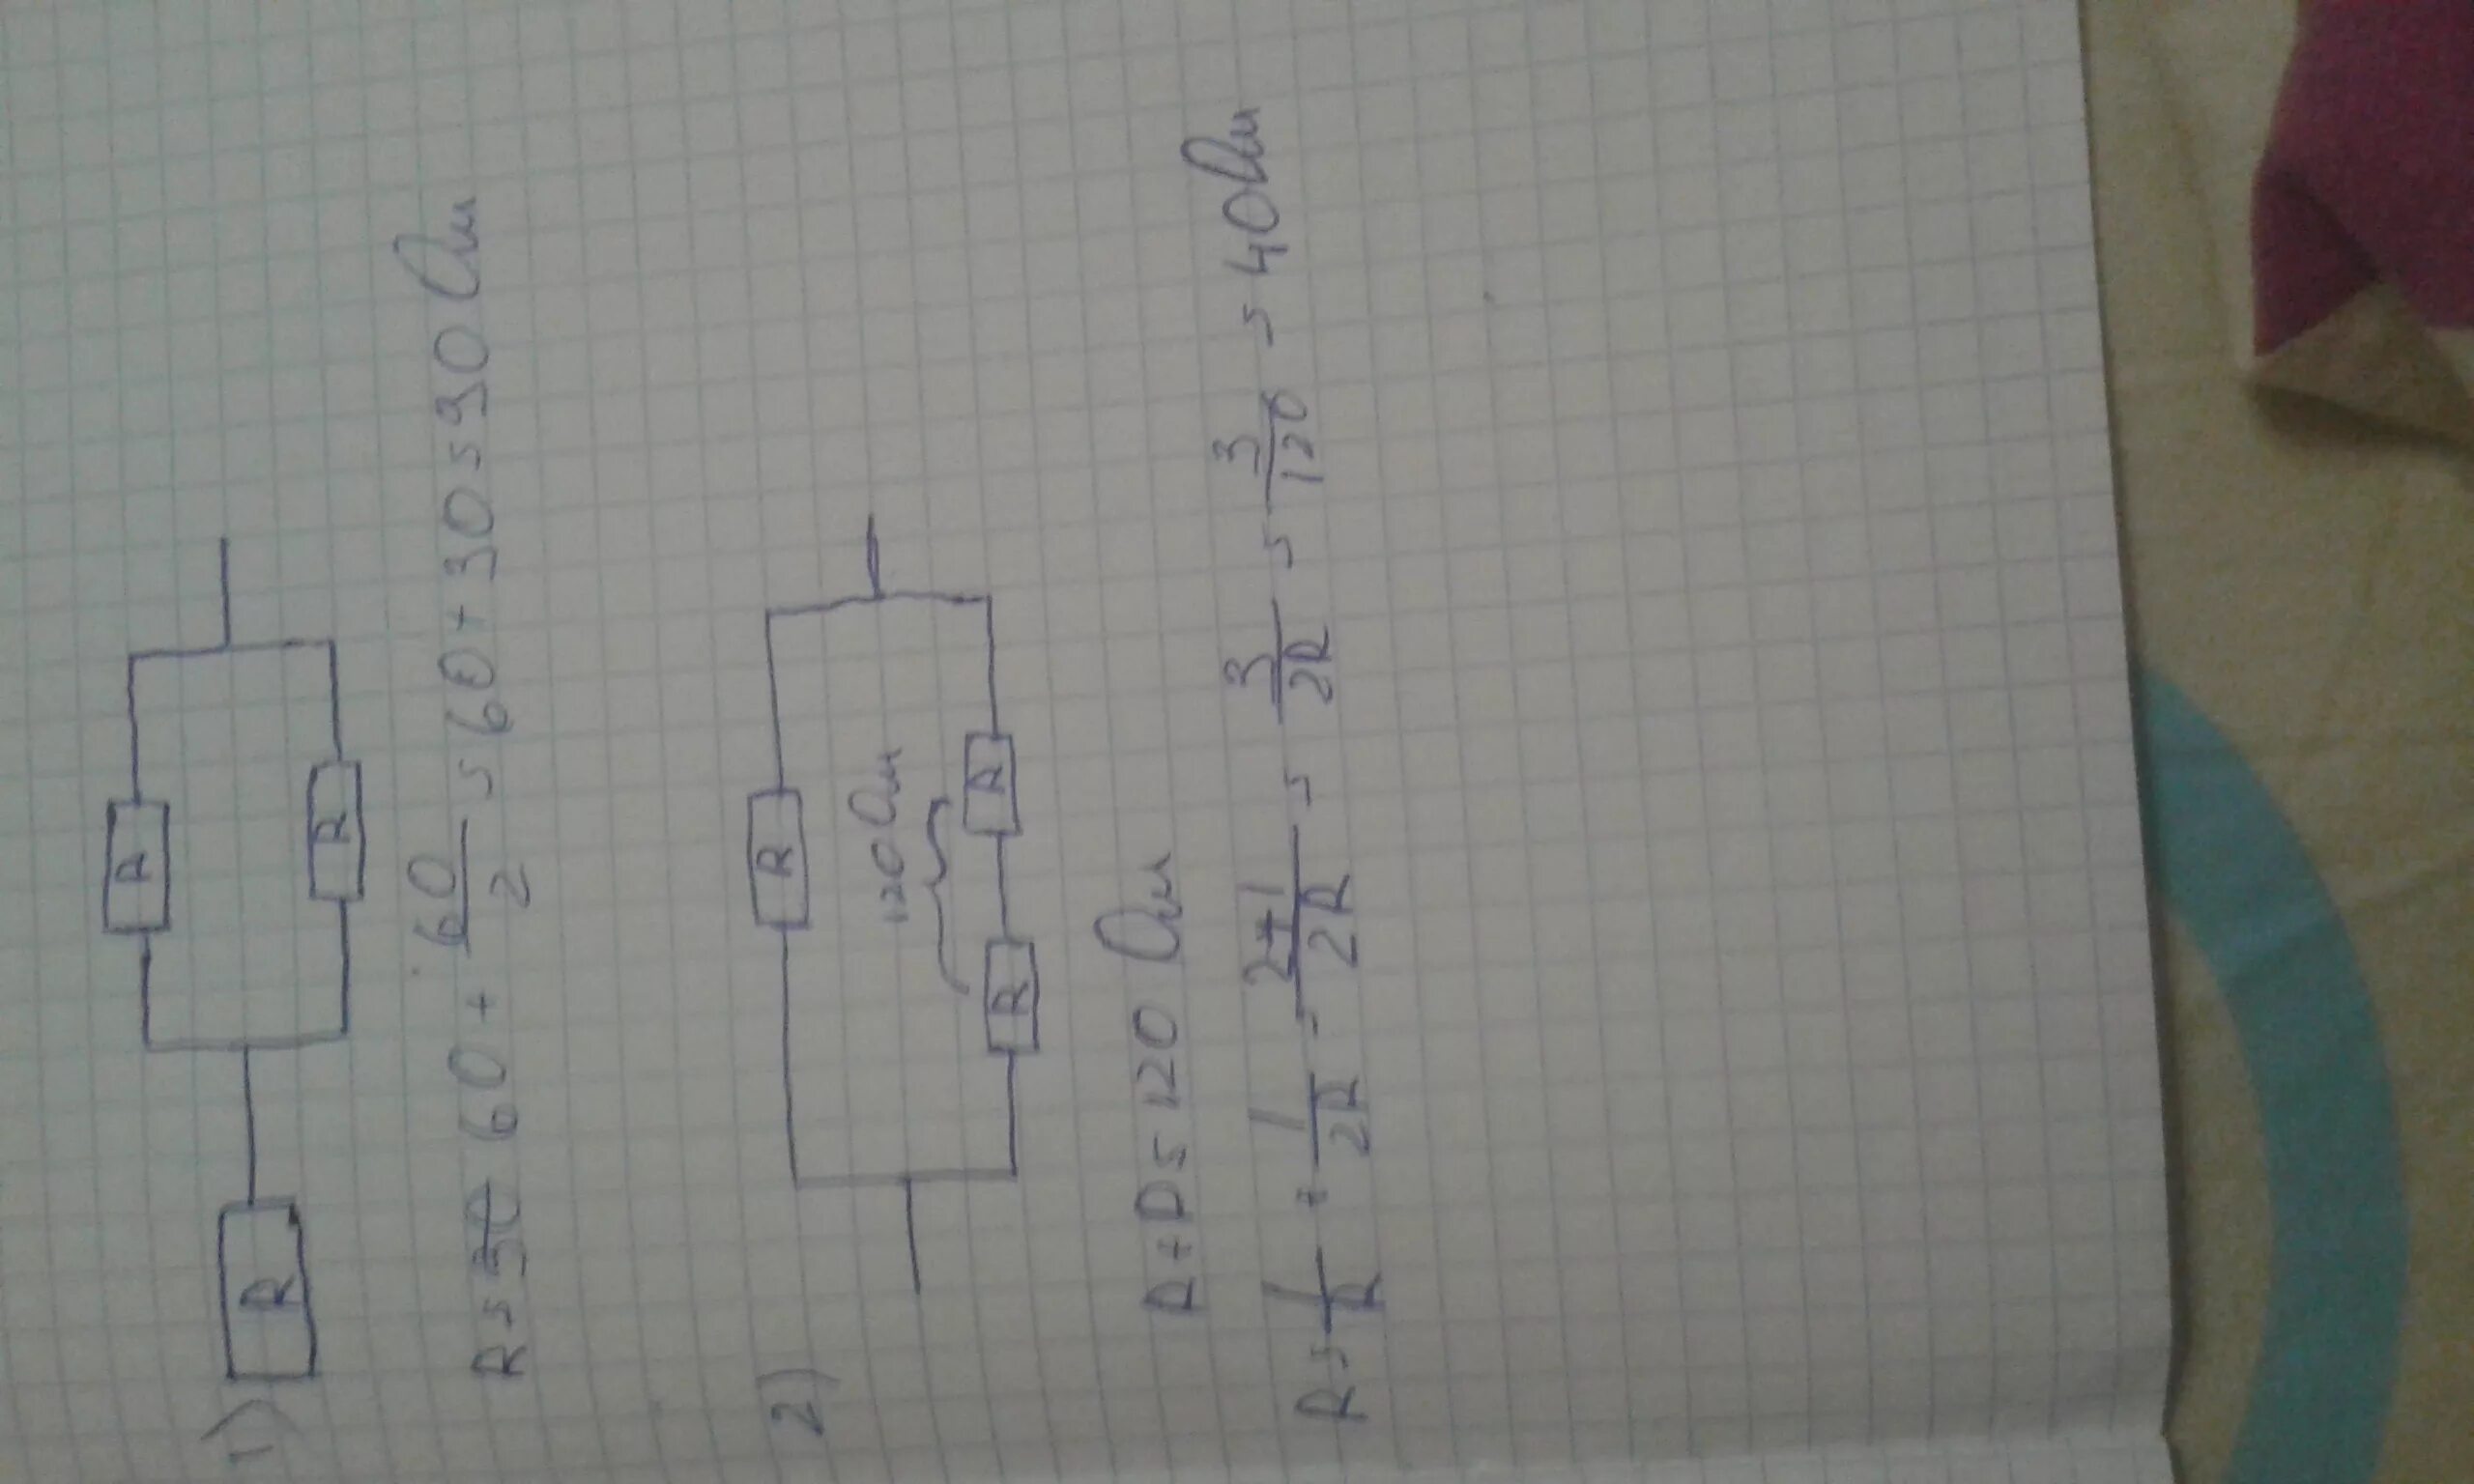 1)
R
R
R
R = 60 + 60/2 = 60 + 30 = 90 Ом
2)
R
120 Ом
R R
R + R = 120 Ом
R = 1/R + 1/2R = 2+1/2R = 3/2R = 3/120 = 40 Ом